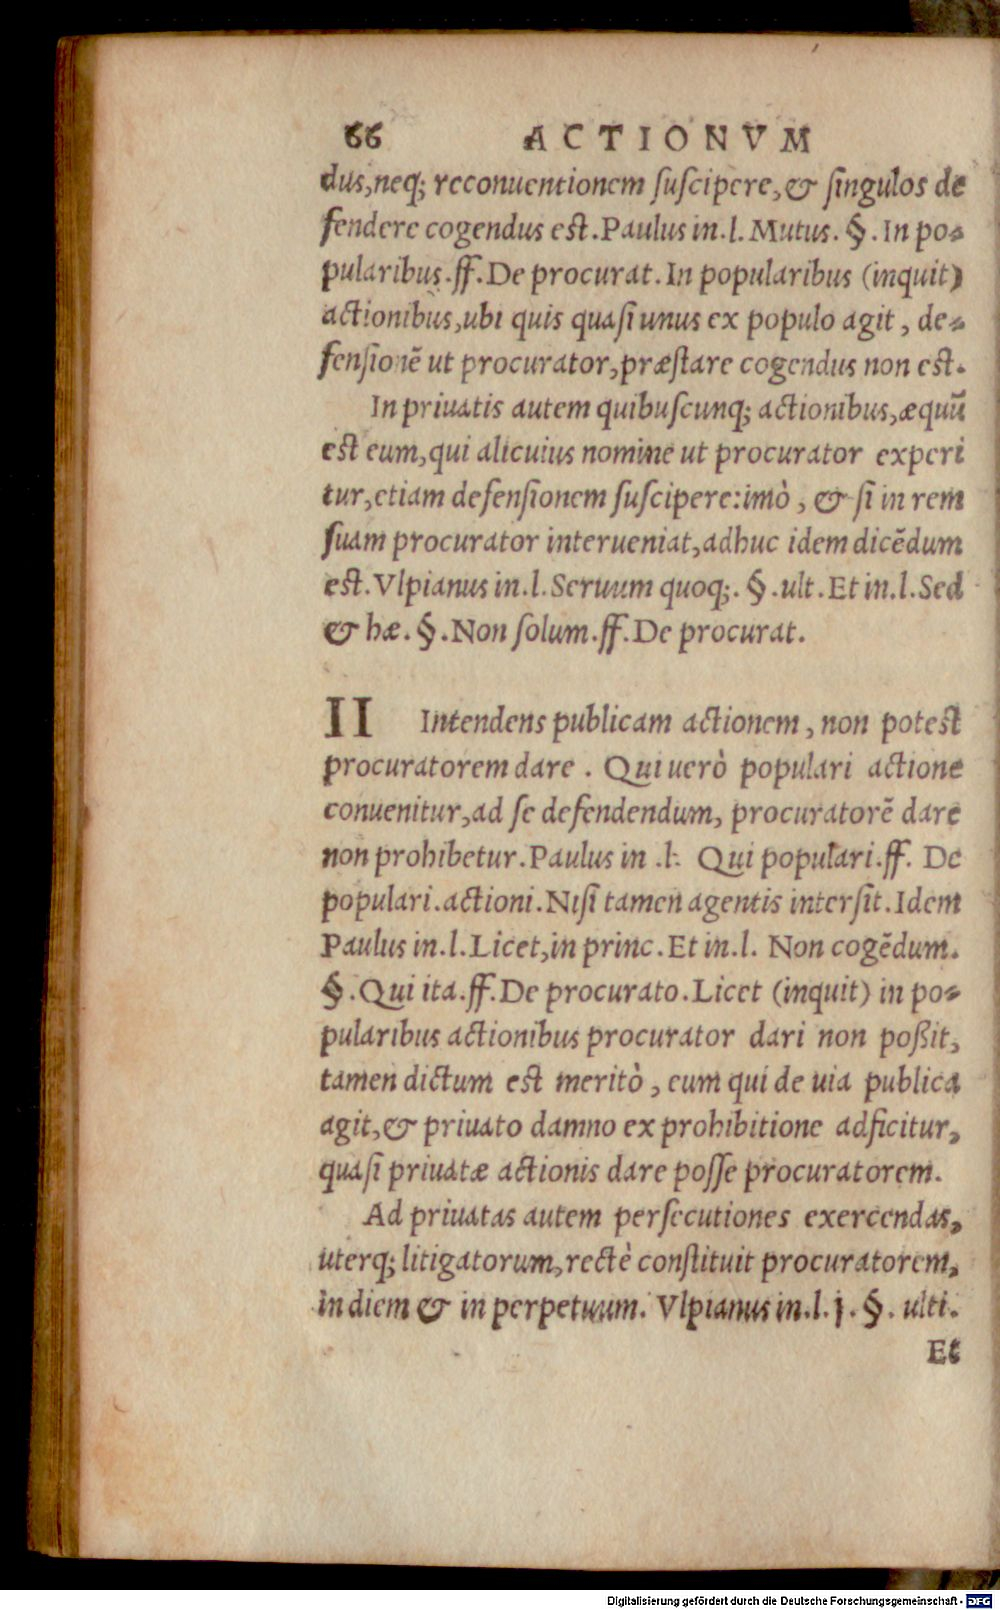 66 ACTIONVM
dus,neq; reconuentionem ſuſcipere,& ſingulos de
fendere cogendus est.Paulus in.l.Mutus.§.In po-
pularibus.ff.De procurat.In popularibus (inquit)
actionibus,ubi quis quaſi unus ex populo agit, de-
fenſionē ut procurator,præſtare cogendus non est.
In priuatis autem quibuſcunq; actionibus,æquū
est eum,qui alicuius nomine ut procurator experi
tur,etiam defenſionem ſuſcipere:imò, & ſi in rem
ſuam procurator interueniat,adhuc idem dicēdum
est.Vlpianus in.l.Seruum quoq;.§.ult.Et in.l.Sed
& hæ.§.Non ſolum.ff.De procurat.
II Intendens publicam actionem, non potest
procuratorem dare. Qui uerò populari actione
conuenitur,ad ſe defendendum, procuratorē dare
non prohibetur.Paulus in .l. Qui populari.ff. De
populari.actioni.Niſi tamen agentis interſit.Idem
Paulus in.l.Licet,in princ.Et in.l. Non cogēdum.
§.Qui ita.ff.De procurato.Licet (inquit) in po-
pularibus actionibus procurator dari non poßit,
tamen dictum est meritò, eum qui de uia publica
agit,& priuato damno ex prohibitione adficitur,
quaſi priuatæ actionis dare poſſe procuratorem.
Ad priuatas autem perſecutiones exercendas,
uterq; litigatorum,rectè conſtituit procuratorem,
in diem & in perpetuum. Vlpianus in.l.j.§. ulti.
Et
Digitalisierung gefördert durch die Deutsche Forschungsgemeinschaft - DFG